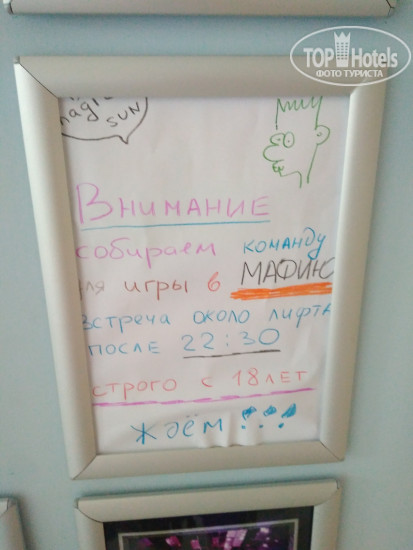 TOP Hotels
ФОТО ТУРИСТА
magic
SUN
ВНИМАНИЕ
собираем команду
для игры в МАФИЮ
встреча около лифта
после 22:30
строго с 18 лет
ждём !!!